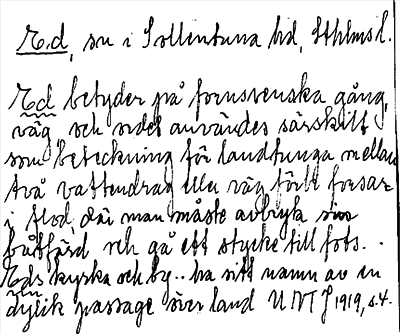 Ed, sn i Sollentuna hd, Sthlms l.
Ed betyder på fornsvenska gång,
väg och ordet användes särskilt
som beteckning för landtunga mellan
två vattendrag eller väg förbi forsar
i flod, där man måste avbryta sin
båtfärd och gå ett stycke till fots. .
Eds kyrka och by .. ha sitt namn av en
dylik passage över land UNT J 1919, s.4.